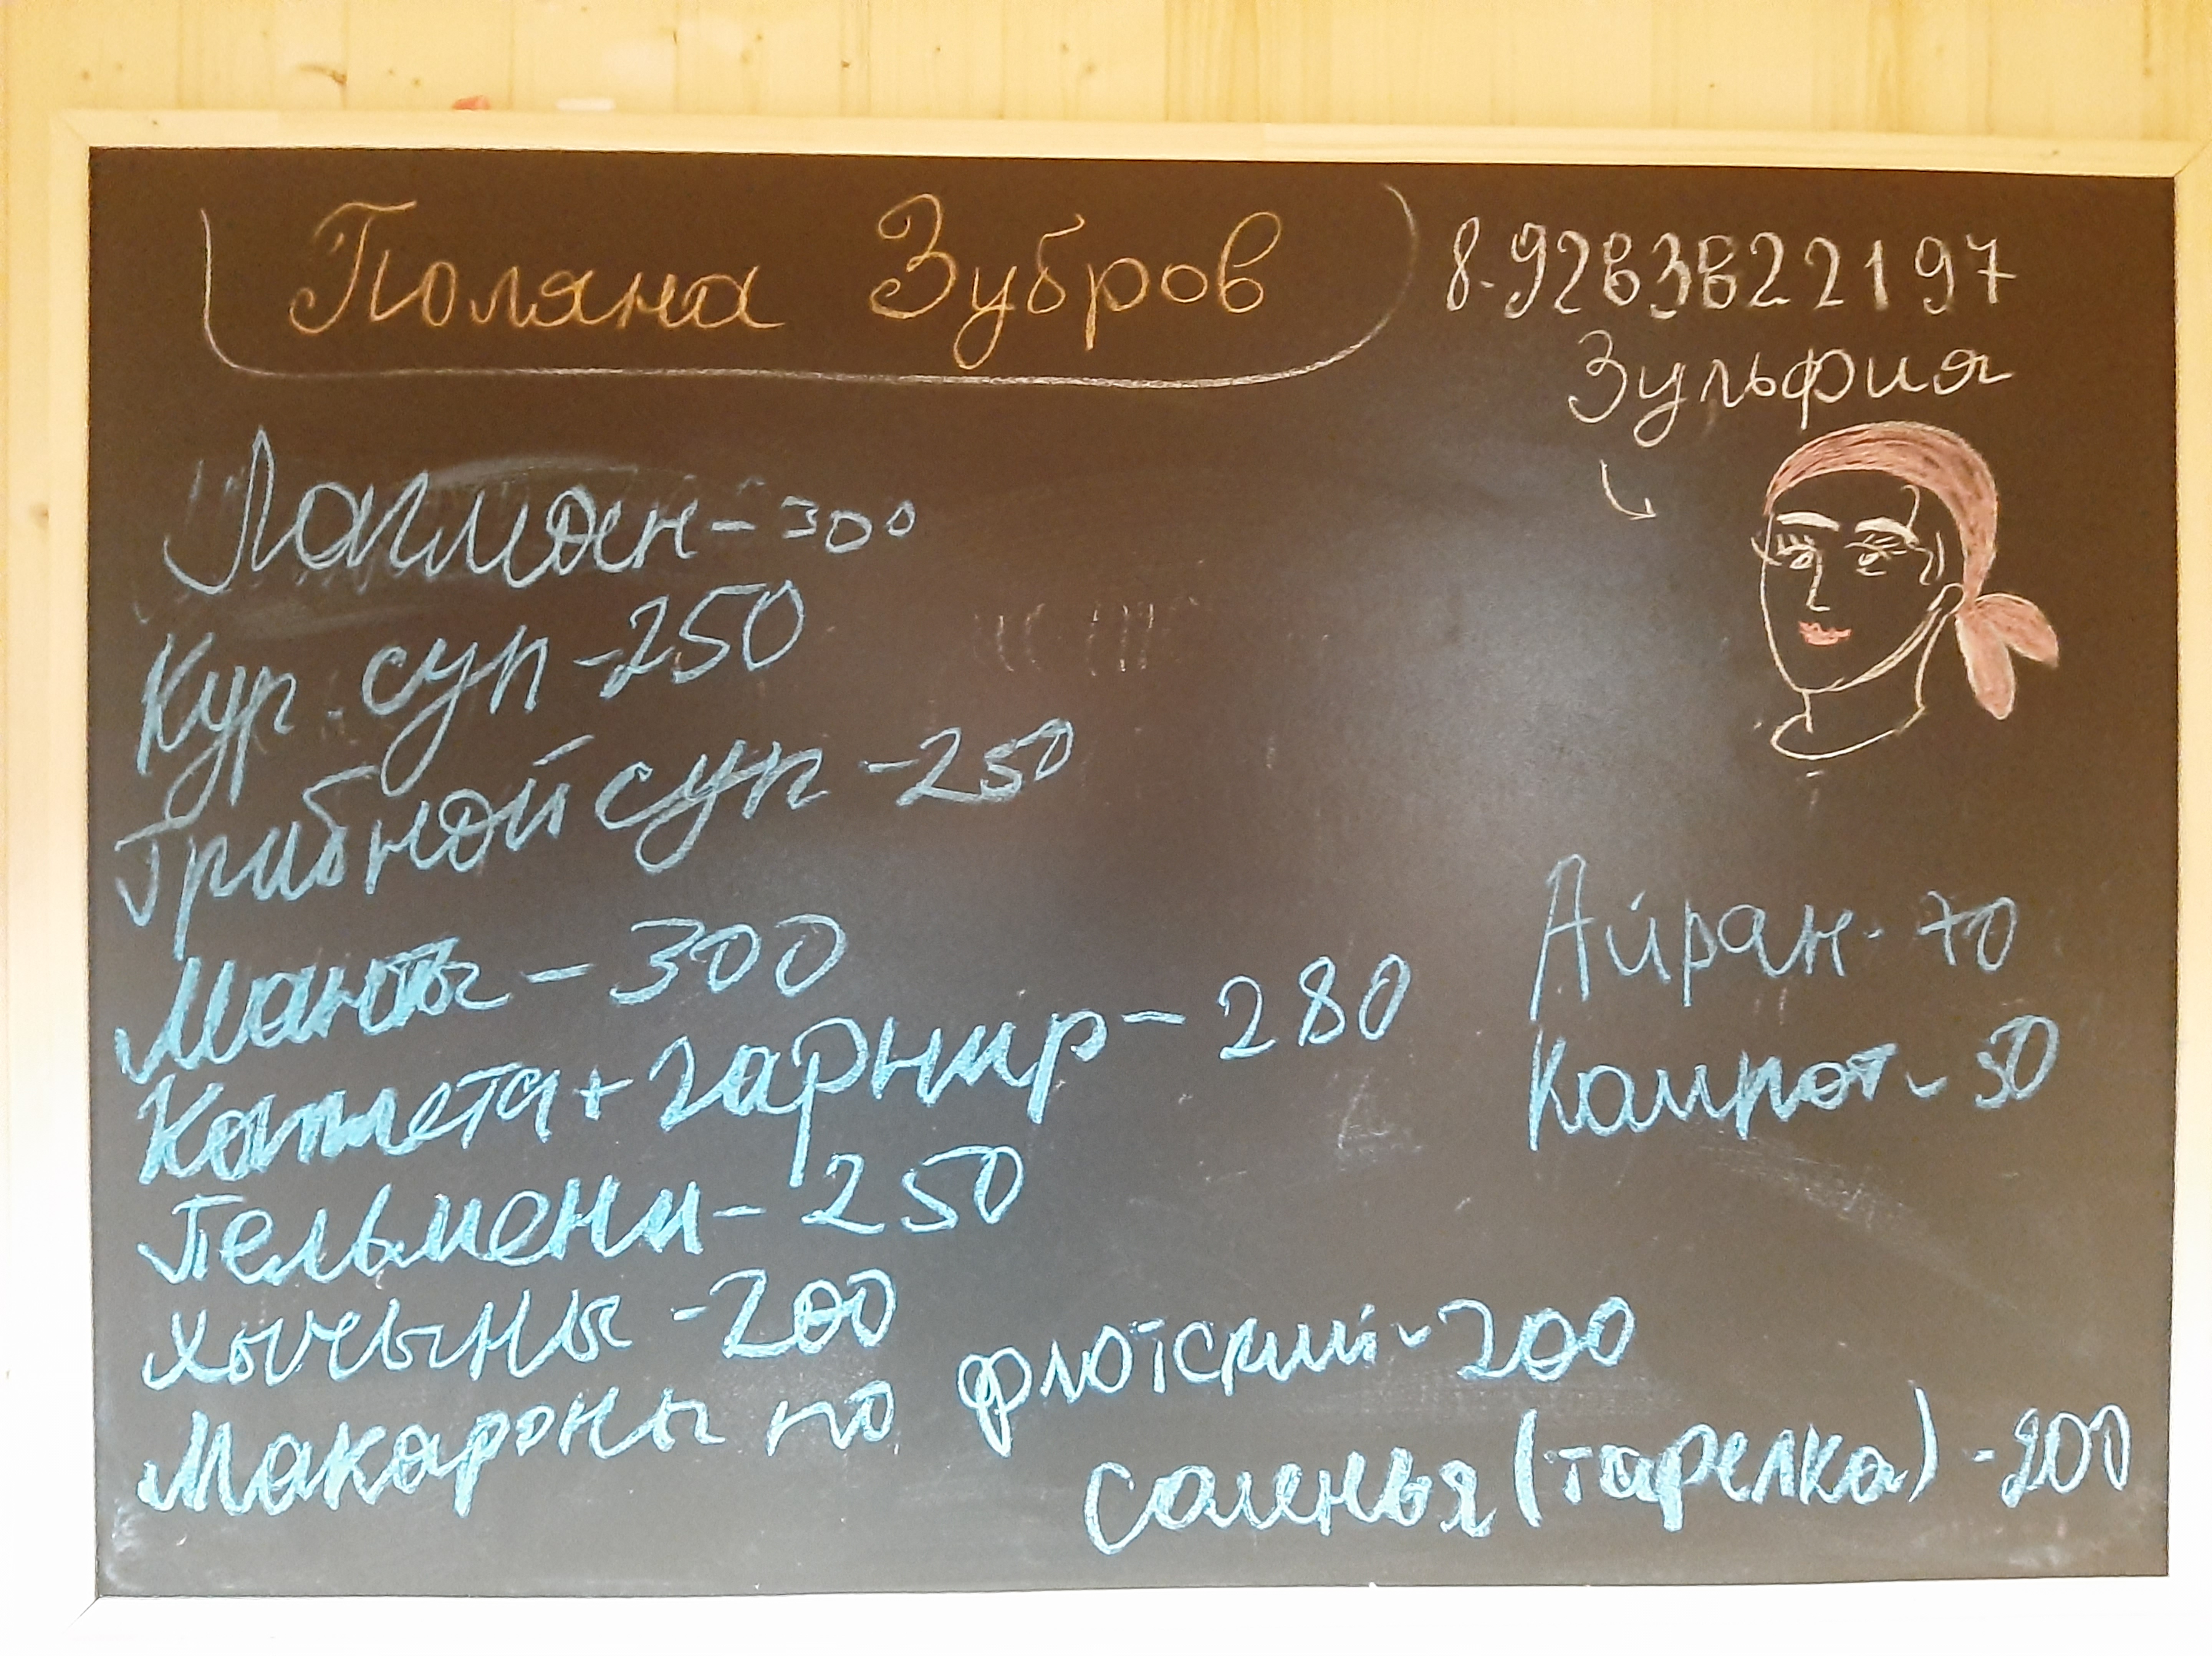 Поляна Зубров
8-9263622197
Зульфия
Лагман - 300
Кур. суп - 250
Грибной суп - 250
Манты - 300
Котлета + гарнир - 280
Пельмени - 250
Хычыны - 200
Макароны по флотский - 200
Айран - 70
Компот - 50
Соленья (тарелка) - 200